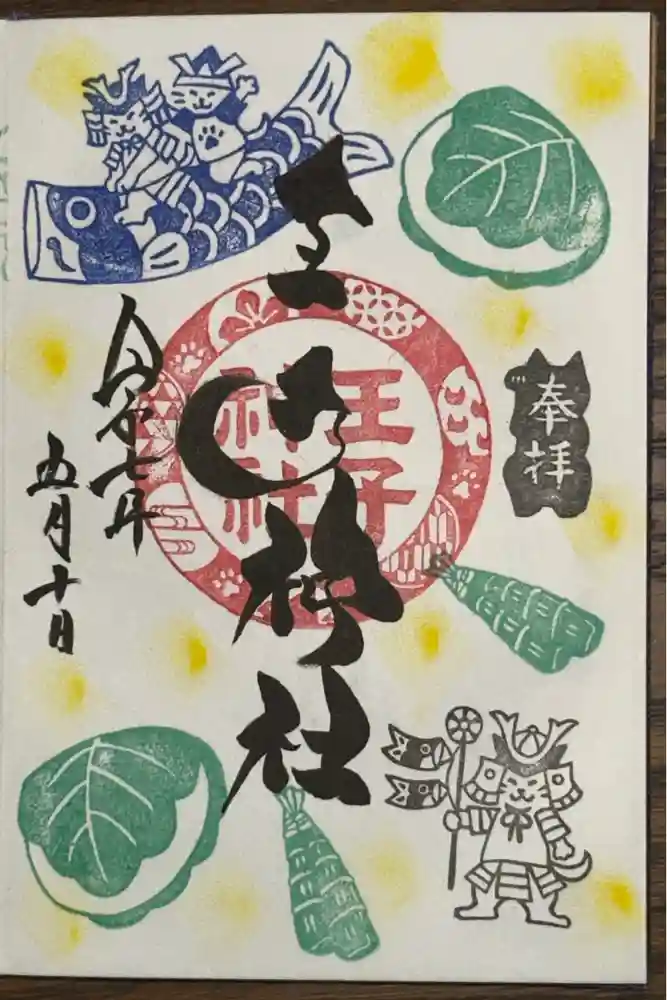 奉拝
王子神社
王子神社
令和七年
五月十日